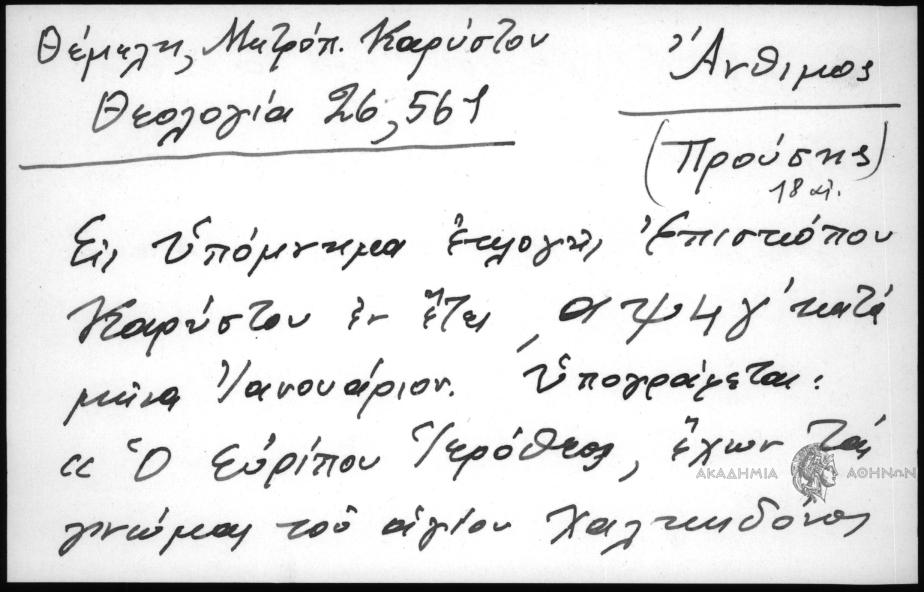 Θέμελη, Μητρόπ. Καρύστου
Θεολογία 26, 561
Ἄνθιμος
(Προύσης)
18 αἰ.
Εἰς Ὑπόμνημα ἐκλογῆς Ἐπισκόπου
Καρύστου ἐν ἔτει ͵αψϟγ' κατά
μῆνα Ἰανουάριον. Ὑπογράφεται:
« Ὁ Εὐρίπου Ἱερόθεος, ἔχων τάς
ΑΚΑΔΗΜΙΑ ΑΘΗΝΩΝ
γνώμας τοῦ ἁγίου Χαλκηδόνος